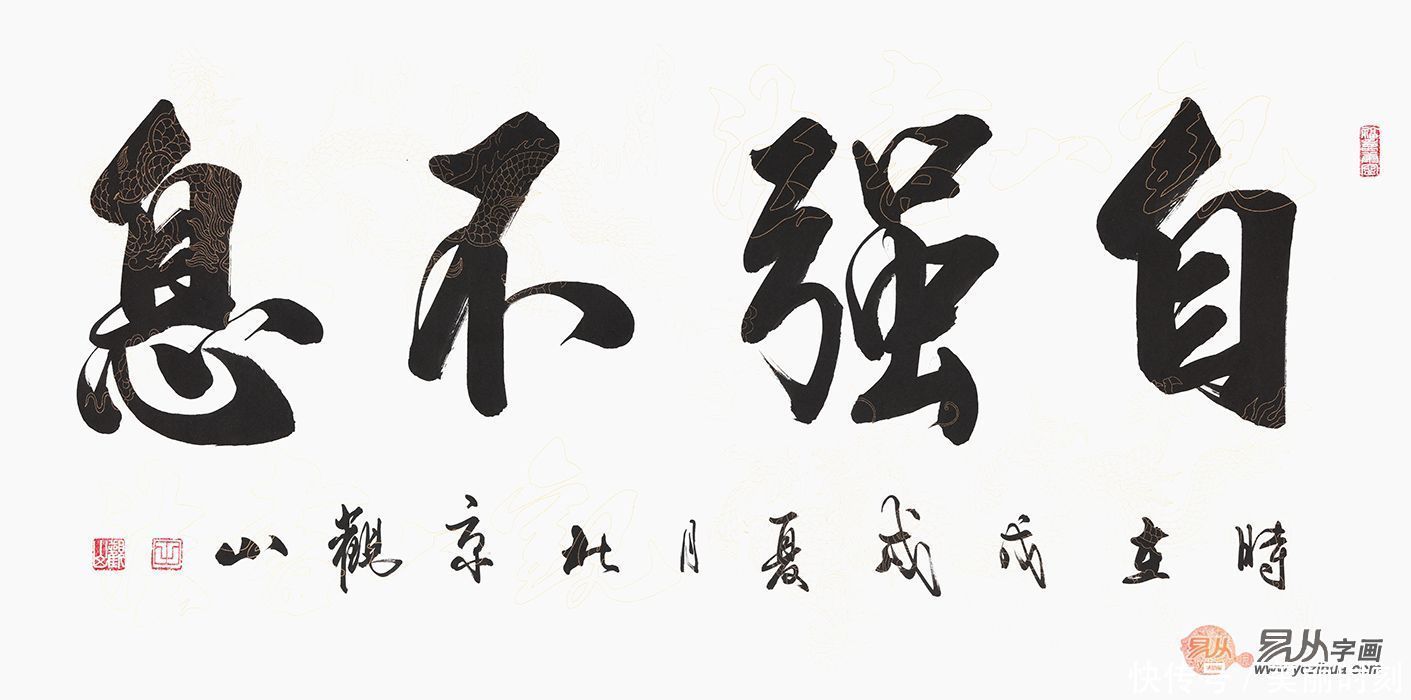 自强不息
時在戊戌夏月北京觀山
易从字画
www.yczihua.com
快传号 / 美丽时刻